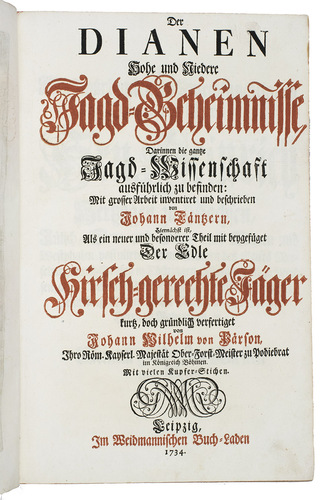 Der
DIANEN
Hohe und Niedere
Jagd-Geheimnisse,
Darinnen die gantze
Jagd-Wissenschaft
außführlich zu befinden:
Mit grosser Arbeit inventiret und beschrieben
von
Johann Täntzern,
Hiernächst ist,
Als ein neuer und besonderer Theil mit beygefüget
Der Edle
Hirsch-gerechte Jäger
kurtz, doch gründlich verfertiget
von
Johann Wilhelm von Pärson,
Ihro Röm. Kayserl. Majestät Ober-Forst-Meister zu Podiebrat
im Königreich Böhmen.
Mit vielen Kupfer-Stichen.
Leipzig,
Im Weidmannischen Buch-Laden
1734.